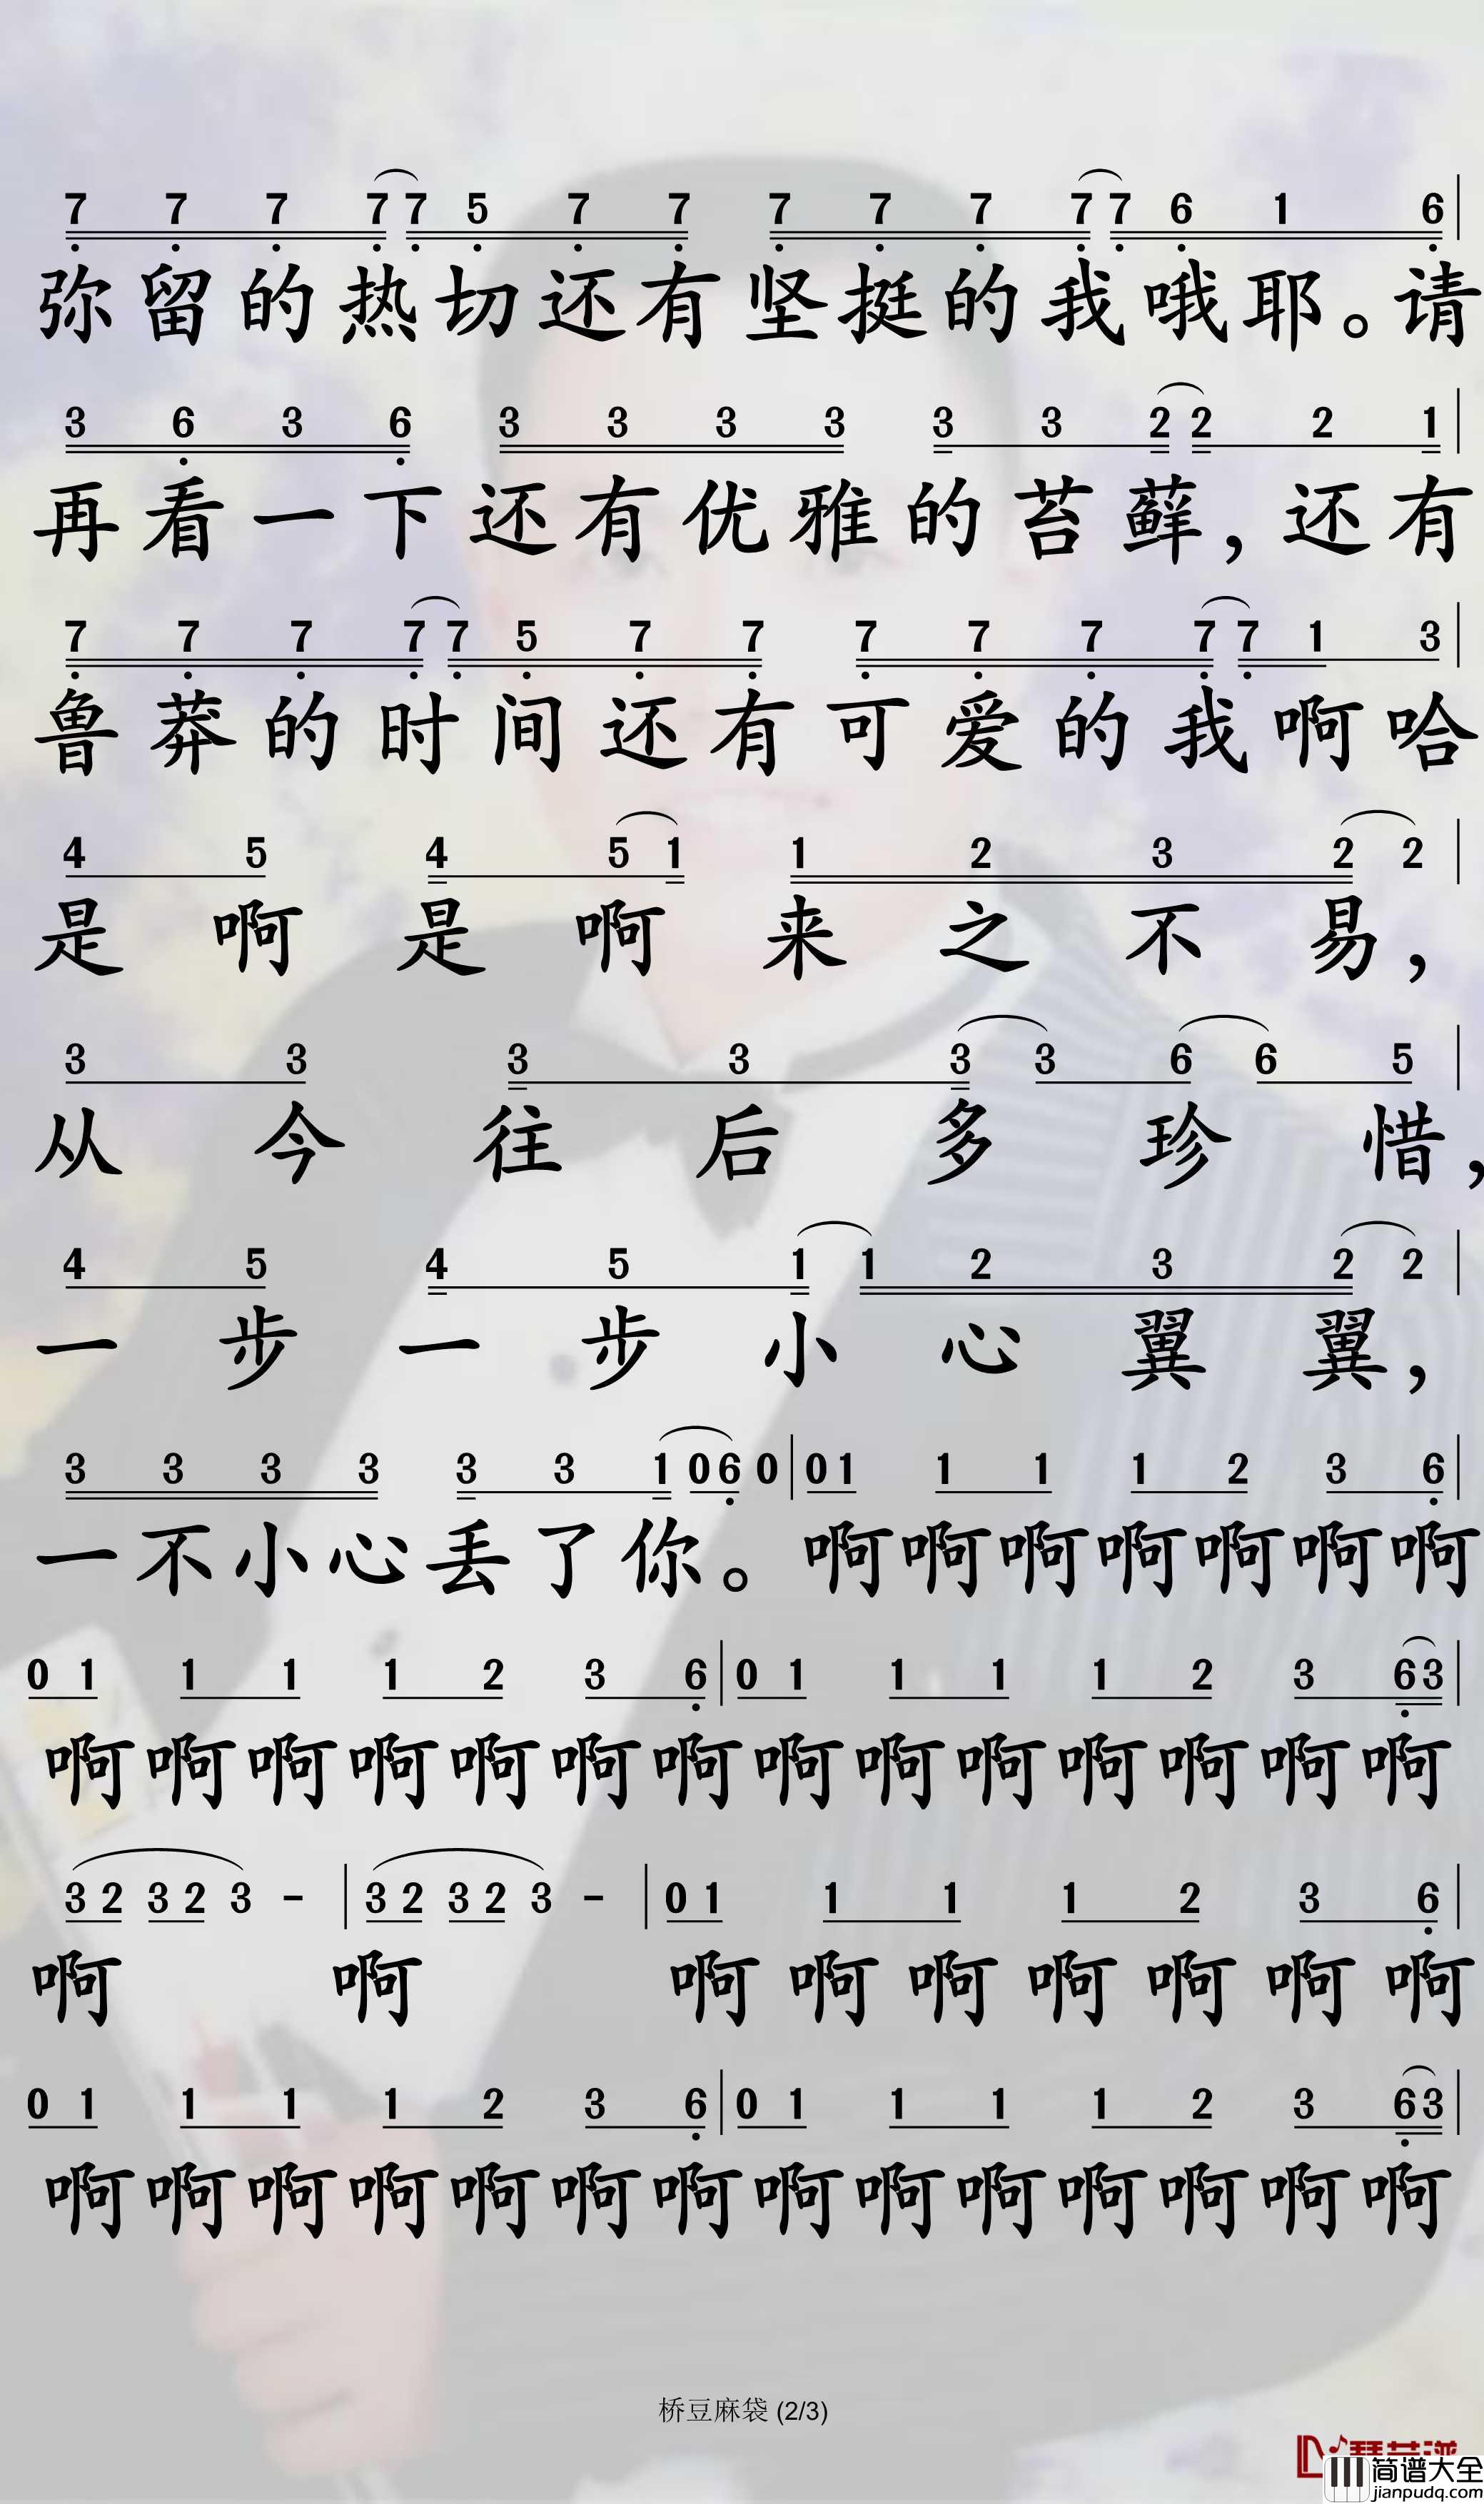 7 7 7 7 7 5 7 7 7 7 7 7 7 6 1 6
弥留的热切还有坚挺的我哦耶。请
3 6 3 6 3 3 3 3 3 3 2 2 2 1
再看一下还有优雅的苔藓，还有
7 7 7 7 7 5 7 7 7 7 7 7 7 1 3
鲁莽的时间还有可爱的我啊哈
4 5 4 5 1 1 2 3 2 2
是啊是啊来之不易，
3 3 3 3 3 3 6 6 5
从今往后多珍惜，
4 5 4 5 1 1 2 3 2 2
一步一步小心翼翼，
3 3 3 3 3 3 1 0 6 0 | 0 1 1 1 1 2 3 6
一不小心丢了你。啊啊啊啊啊啊啊
0 1 1 1 1 2 3 6 | 0 1 1 1 1 2 3 6 3
啊啊啊啊啊啊啊啊啊啊啊啊啊啊
3 2 3 2 3 - | 3 2 3 2 3 - | 0 1 1 1 1 2 3 6
啊 啊 啊啊啊啊啊啊啊
0 1 1 1 1 2 3 6 | 0 1 1 1 1 2 3 6 3
啊啊啊啊啊啊啊啊啊啊啊啊啊啊
桥豆麻袋 (2/3)
简谱大全
jianpudq.com